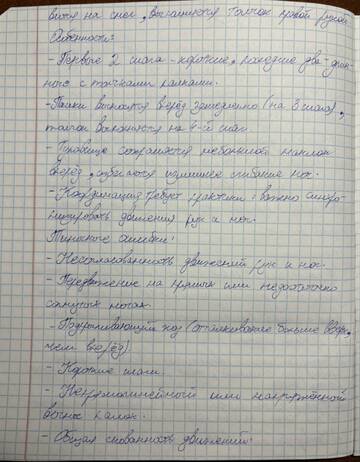 вится на снег, выполняется толчок правой рукой
Особенности:
- Первые 2 шага - короткие, последние два - длин-
ного с толчками палками.
- Палки выносятся вперёд замедленно (на 3 шага),
толчок выполняется на 4-й шаг.
- Туловище сохраняется небольшой наклон
вперёд, избегаются излишнее сгибание ног.
- Координация требует практики: важно синхро
низировать движения рук и ног.
Типичные ошибки:
- Несогласованность движений рук и ног.
- Передвижение на прямых или недостаточно
согнутых ногах.
- Подпрыгивающий ход (отталкивание больше вверх,
чем вперёд)
- Короткие шаги.
- Непрямолинейный или напряжённый
вынос палок.
- Общая скованность движений.